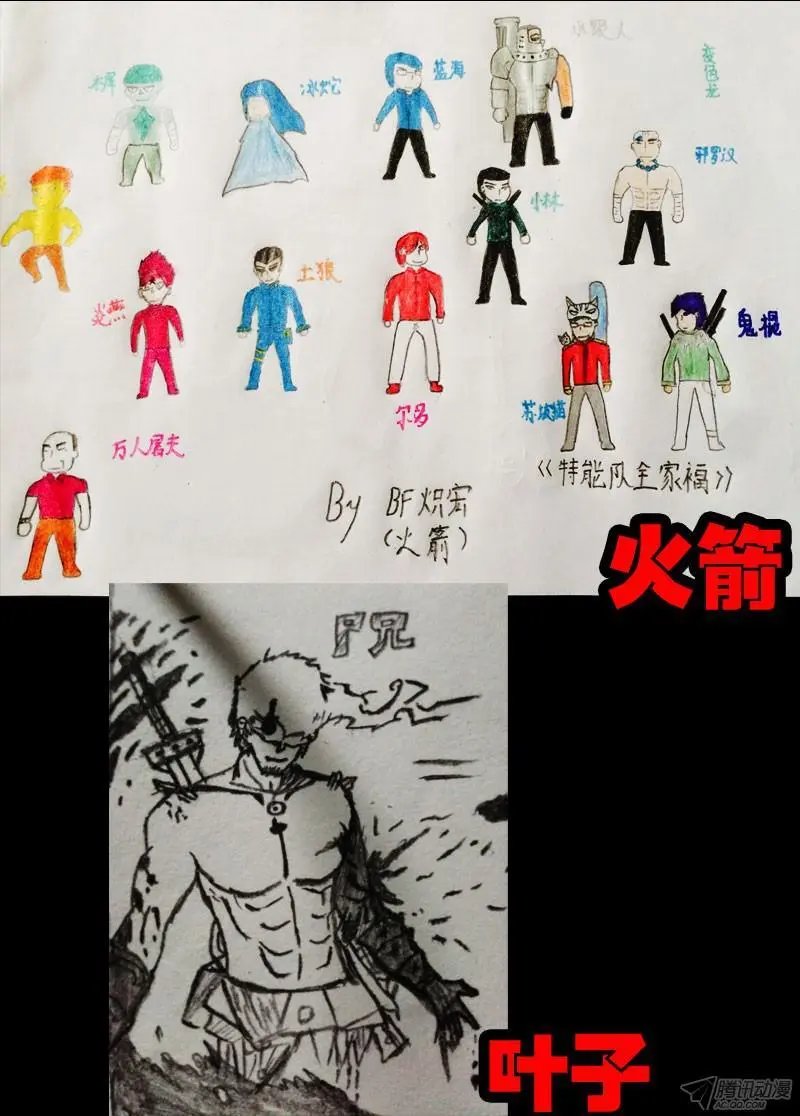 冰蛇
蓝海
水银人
变色龙
邪罗汉
小林
炎燕
土狼
尔多
苏波猫
鬼棍
万人屠夫
《特能队全家福》
By BF炽宏
(火箭)
火箭
尸兄
叶子
腾讯动漫
AC.QQ.COM